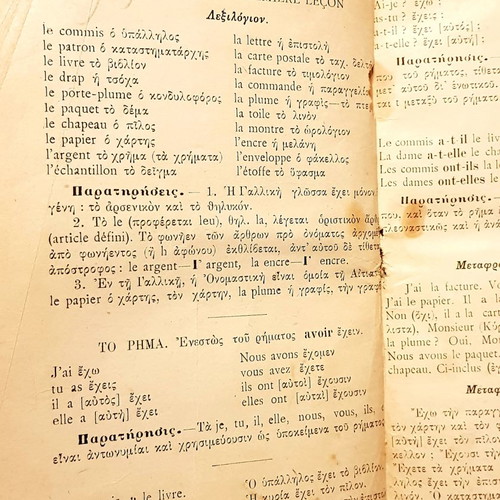 LEÇON
Λεξιλόγιον.
le commis ὁ ὑπάλληλος
le patron ὁ καταστηματάρχης
le livre τὸ βιβλίον
le drap ἡ τσόχα
le porte-plume ὁ κονδυλοφόρος
le paquet τὸ δέμα
le chapeau ὁ πῖλος
le papier ὁ χάρτης
l'argent τὸ χρῆμα (τὰ χρήματα)
l'échantillon τὸ δεῖγμα
la lettre ἡ ἐπιστολὴ
la carte postale τὸ ταχ. δελτά
la facture τὸ τιμολόγιον
la commande ἡ παραγγελία
la plume ἡ γραφὶς—τὸ πτε
la toile τὸ λινὸν
la montre τὸ ὡρολόγιον
l'encre ἡ μελάνη
l'enveloppe ὁ φάκελλος
l'étoffe τὸ ὕφασμα
Παρατηρήσεις. — 1. Ἡ Γαλλικὴ γλῶσσα ἔχει μόνον
γένη: τὸ ἀρσενικὸν καὶ τὸ θηλυκόν.
2. Τὸ le (προφέρεται leu), θηλ. la, λέγεται ὁριστικὸν ἄρθ
(article défini). Τὸ φωνῆεν τῶν ἄρθρων πρὸ ὀνόματος ἀρχομέ
ἀπὸ φωνήεντος (ἢ h ἀφώνου) ἐκθλίβεται, ἀντ' αὐτοῦ δὲ τίθετ
ἀπόστροφος: le argent—l' argent, la encre—l' encre.
3. Ἐν τῇ Γαλλικῇ, ἡ Ὀνομαστικὴ εἶναι ὁμοία τῇ Αἰτιατ
le papier ὁ χάρτης, τὸν χάρτην, la plume ἡ γραφίς, τὴν γραφί
ΤΟ ΡΗΜΑ. Ἐνεστὼς τοῦ ῥήματος avoir ἔχειν.
J'ai ἔχω
tu as ἔχεις
il a [αὐτὸς] ἔχει
elle a [αὐτὴ] ἔχει
Nous avons ἔχομεν
vous avez ἔχετε
ils ont [αὐτοὶ] ἔχουσιν
elles ont [αὐταὶ] ἔχουσιν
Παρατήρησις.— Τὰ je, tu, il, elle, nous, vous, ils,
εἶναι ἀντωνυμίαι καὶ χρησιμεύουσιν ὡς ὑποκείμενα τοῦ ῥήματος
le livre.
Ὁ ὑπάλληλος ἔχει τὸ βιβλίον.
Ἡ κυρία ἔχει τὸν πῖλον.
Ai-je? ἔχω;
as-tu? ἔχεις;
a-t-il? ἔχει [αὐτός];
a-t-elle? ἔχει [αὐτή];
Παρατήρησις.
που τοῦ ῥήματος, τίθεται
μετ' αὐτοῦ δι' ἑνωτικοῦ.
ται t μεταξὺ τοῦ ῥήματος
Le commis a-t-il le livre
La dame a-t-elle le cha
Les commis ont-ils la le
Les dames ont-elles le
Παρατήρησις.—
που, καὶ ὅταν τὸ ῥῆμα
πλεοναστικῶς καὶ ἡ ἀν
Μεταφρ
J'ai la facture. Vo
J'ai le papier. Il a l
Non (ὄχι), il a la cart
λιστα). Monsieur (Κύρ
la plume? Oui, Mon
Nous avons le paquet
chapeau. Ci-inclus (ἐ
Μεταφ
Ἔχω τὴν παραγγ
τὸν χάρτην καὶ τὸν φ
ἔχει τὸν πῖλον.
λον; Ἔχουσι τὴν
Ἔχετε τὰ χρήματα
λινόν. Ὁ καταστημα